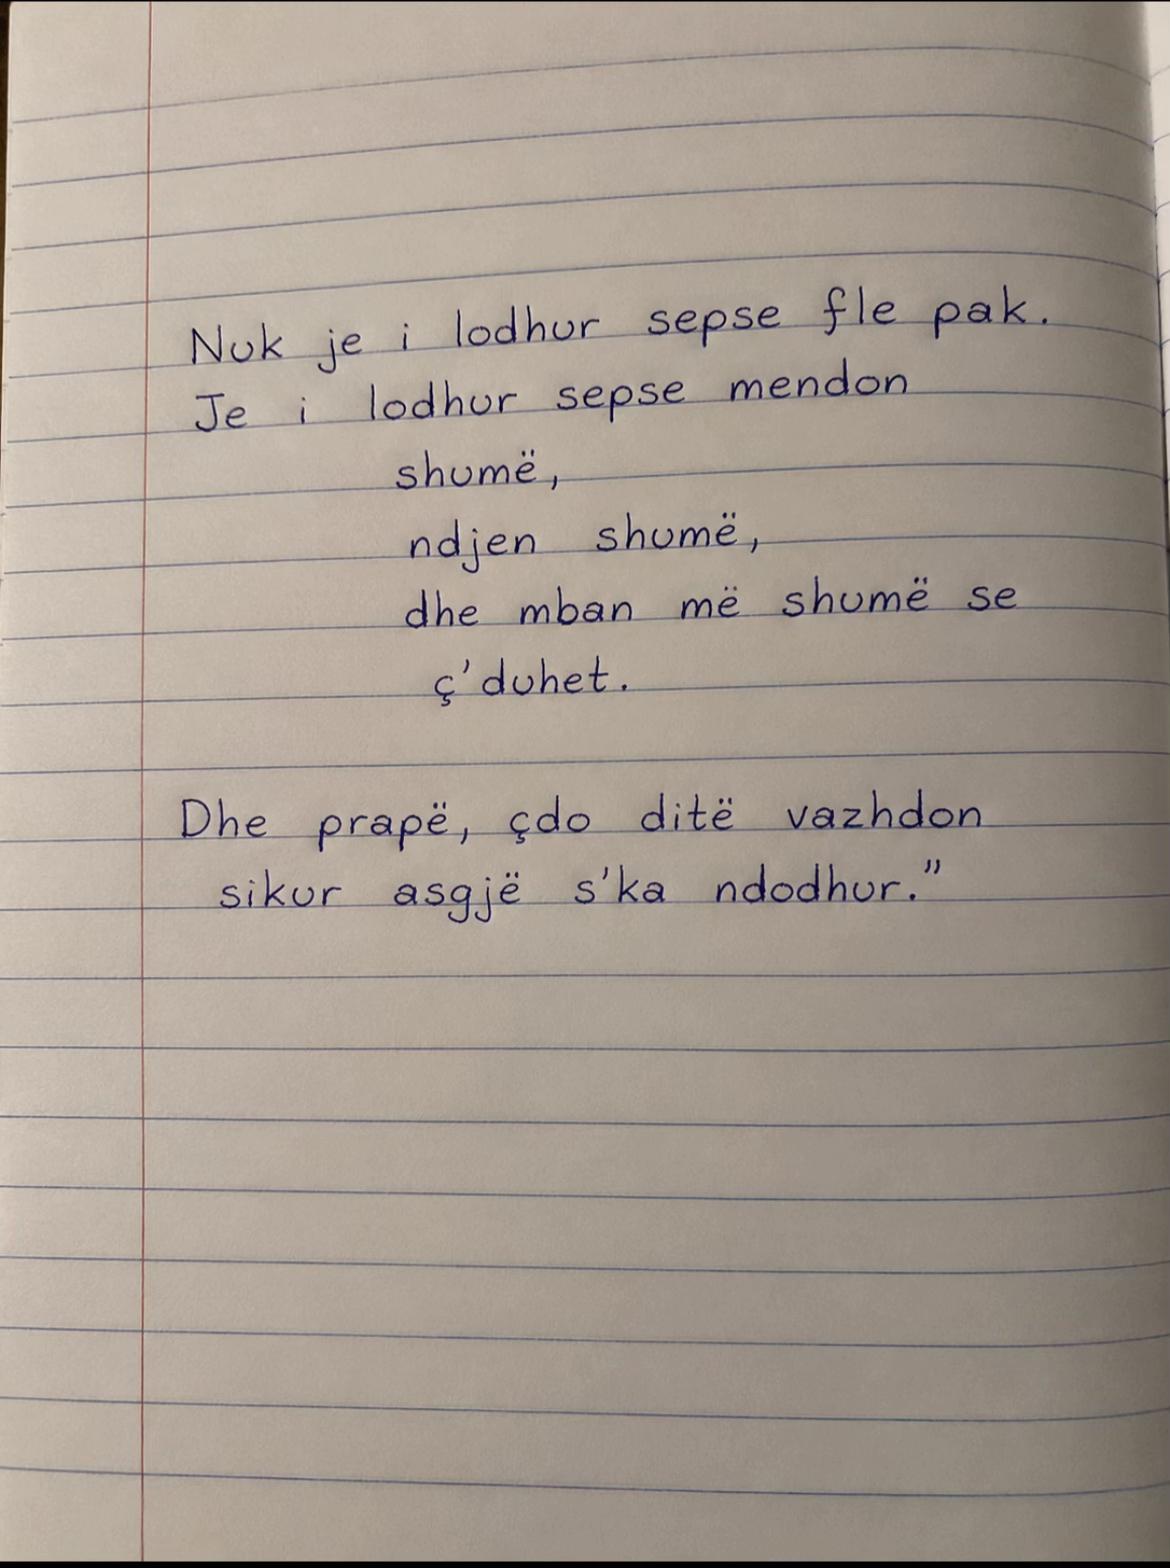 Nuk je i lodhur sepse fle pak.
Je i lodhur sepse mendon
shumë,
ndjen shumë,
dhe mban më shumë se
ç'duhet.
Dhe prapë, çdo ditë vazhdon
sikur asgjë s'ka ndodhur.”